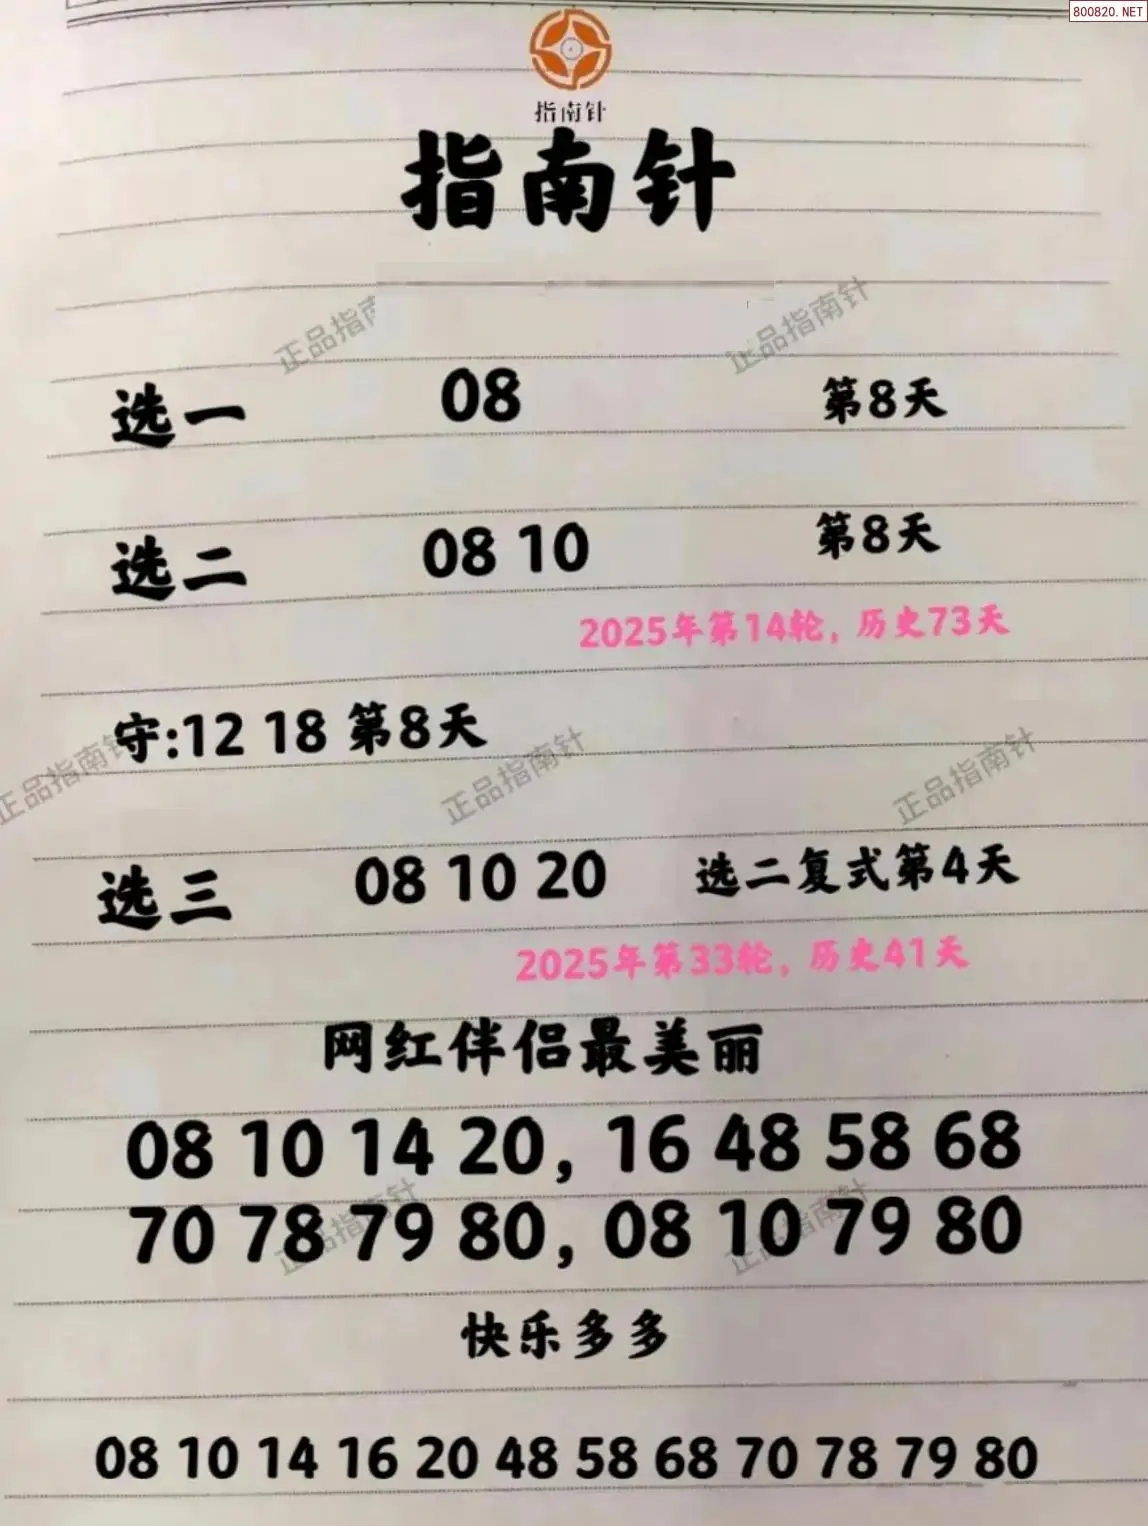 800820.NET
指南针
指南针
正品指南
正品指南针
选一 08 第8天
选二 08 10 第8天
2025年第14轮，历史73天
守:12 18 第8天
正品指南针
正品指南针
正品指南针
选三 08 10 20 选二复式第4天
2025年第33轮，历史41天
网红伴侣最美丽
08 10 14 20, 16 48 58 68
正品指南针
正品指南针
70 78 79 80, 08 10 79 80
快乐多多
08 10 14 16 20 48 58 68 70 78 79 80